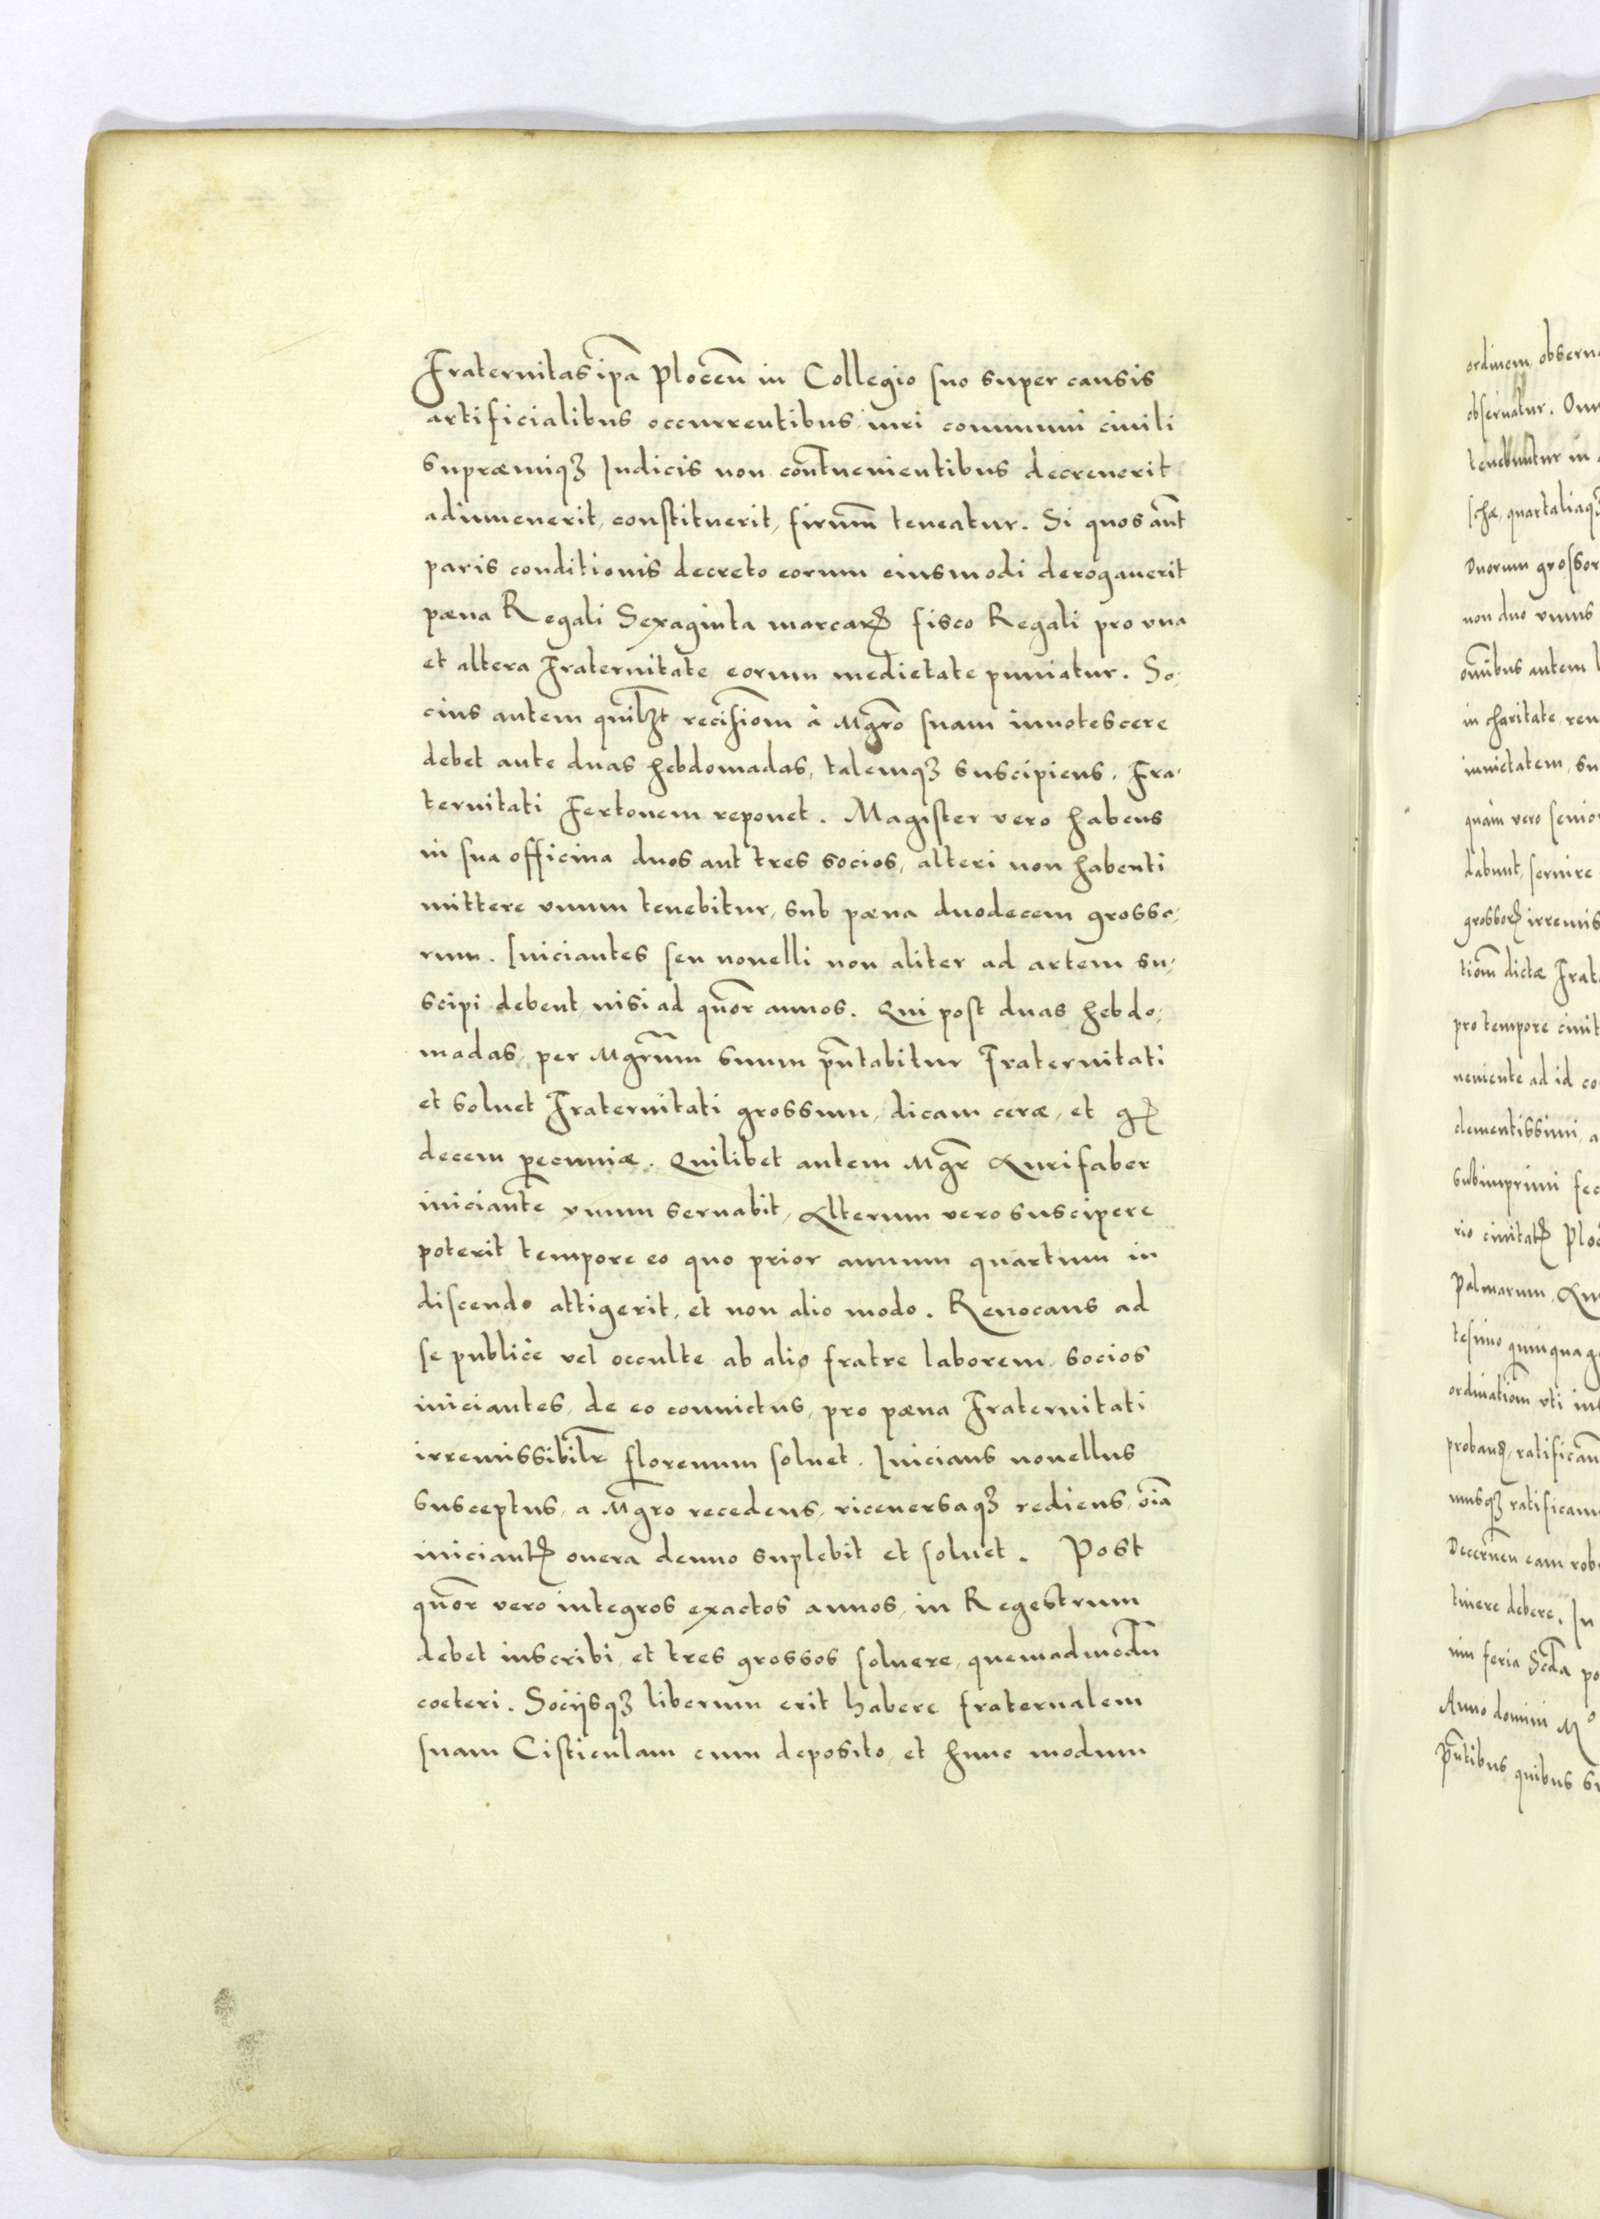 Fraternitas ipa Plocen in Collegio suo super causis
artificialibus occurrentibus, iuri communi ciuili
supræmiqȝ Iudicis non contuenientibus decreuerit
adinuenerit, constituerit, firmum teneatur. Si quos aut
paris conditionis decreto eorum eiusmodi derogauerit
pæna Regali Sexaginta marcarꝝ fisco Regali pro vna
et altera Fraternitate eorum medietate puniatur. So,
cius autem quilꝫt recisiom à Mgro suam innotescere
debet ante duas hebdomadas, talemqȝ suscipiens. Fra,
ternitati Fertonem reponet. Magister vero habens
in sua officina duos aut tres socios, alteri non habenti
mittere vnum tenebitur, sub pæna duodecem grosso,
rum. Iniciantes seu nouelli non aliter ad artem su,
scipi debent nisi ad quor annos. Qui post duas hebdo,
madas, per Mgrum suum pntabitur Fraternitati
et soluet Fraternitati grossum, dicam ceræ, et gꝝ
decem pecuniæ. Quilibet autem Mgr Aurifaber
iniciante vnum seruabit, Alterum vero suscipere
poterit tempore eo quo prior annum quartum in
discendo attigerit, et non alio modo. Reuocans ad
se publice vel occulte ab alio fratre laborem, socios
iniciantes, de eo conuictus, pro pæna Fraternitati
irremissibilr florenum soluet. Inicians nouellus
susceptus, a Mgro recedens, viceuersaqȝ rediens, oia
iniciantꝝ onera denuo suplebit et soluet. Post
quor vero integros exactos annos, in Regestrum
debet inscribi, et tres grossos soluere, quemadmodu
coeteri. Sociisqȝ liberum erit habere fraternalem
suam Cisticulam cum deposito, et hunc modum
ordinem
obseruatur.
tenebuntur in
schæ, quartaliaqȝ
Duorum
non duo vnus
omibus autem
in charitate
quam vero
dabunt, seruire
grossorꝝ
tiom dictæ
pro tempore
ueniente ad id
clementissimi,
subimprimi
rio ciuitatꝝ
Palmarum,
tesimo
ordinatiom vti
musqȝ
Decernen eam
tinere debere. In
nin feria Scda
Anno domini Mº
Pntibus quibus